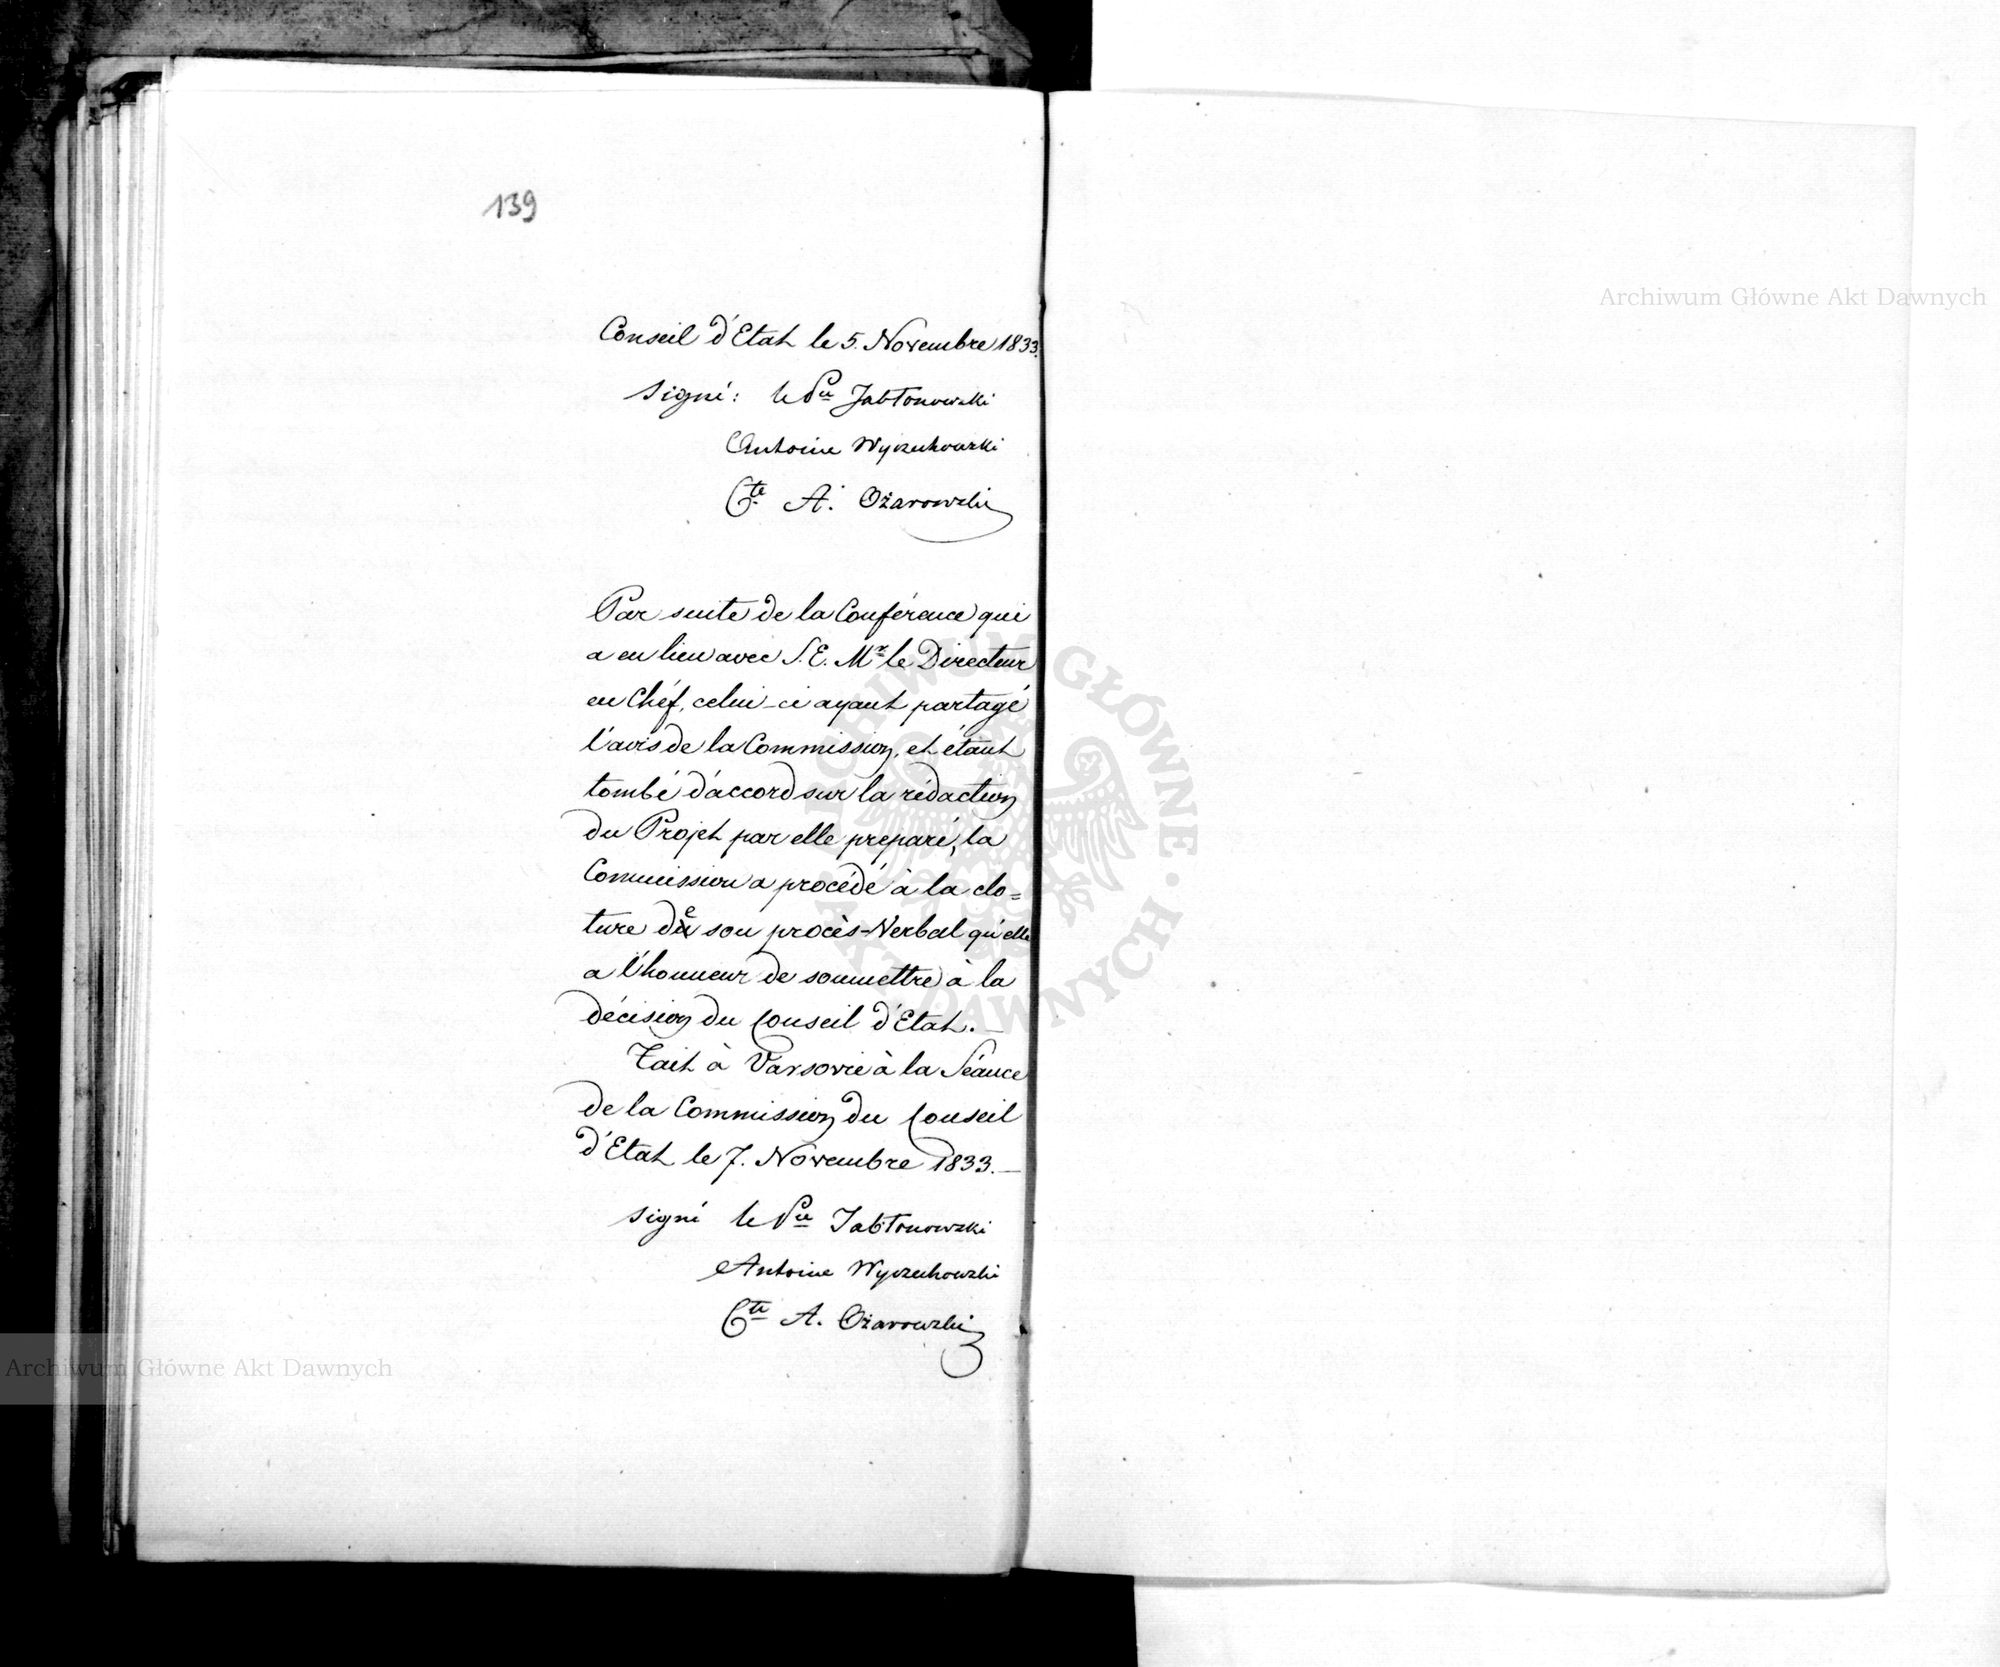 139
Conseil d'Etat le 5. Novembre 1833.
signé: le Pce Jabłonowski
Antoine Wyczechowski
Cte A. Ożarowski
Par suite de la Conférence qui
a eu lieu avec S. E. Mr le Directeur
en Chéf, celui-ci ayant partagé
l'avis de la Commission, et étant
tombé d'accord sur la rédaction
du Projet par elle preparé, la
Commission a procédé à la clo=
ture de son procès-Verbal qu'elle
a l'honneur de soumettre à la
décision du Conseil d'Etat.—
Fait à Varsovie à la Séance
de la Commission du Conseil
d'Etat le 7. Novembre 1833.—
signé le Pce Jabłonowski
Antoine Wyczechowski
Cte A. Ożarowski
Archiwum Główne Akt Dawnych
Archiwum Główne Akt Dawnych
ARCHIWUM GŁÓWNE AKT DAWNYCH